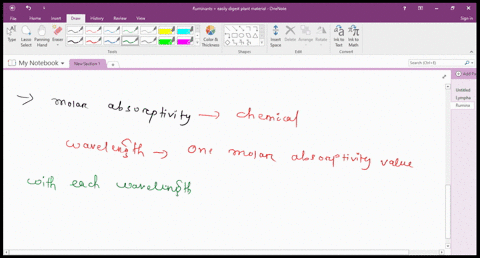 ruminants - easily digest plant material - OneNote
Sign in
File
Home
Insert
Draw
History
Review
View
Type
Lasso Select
Panning Hand
Eraser
Color & Thickness
Insert Space
Delete
Arrange
Rotate
Ink to Text
Ink to Math
Tools
Shapes
Edit
Convert
My Notebook
New Section 1
Search (Ctrl+E)
Untitled
Lympha
Rumina
→ molar absorptivity → chemical
wavelength → One molar absorptivity value
with each wavelength